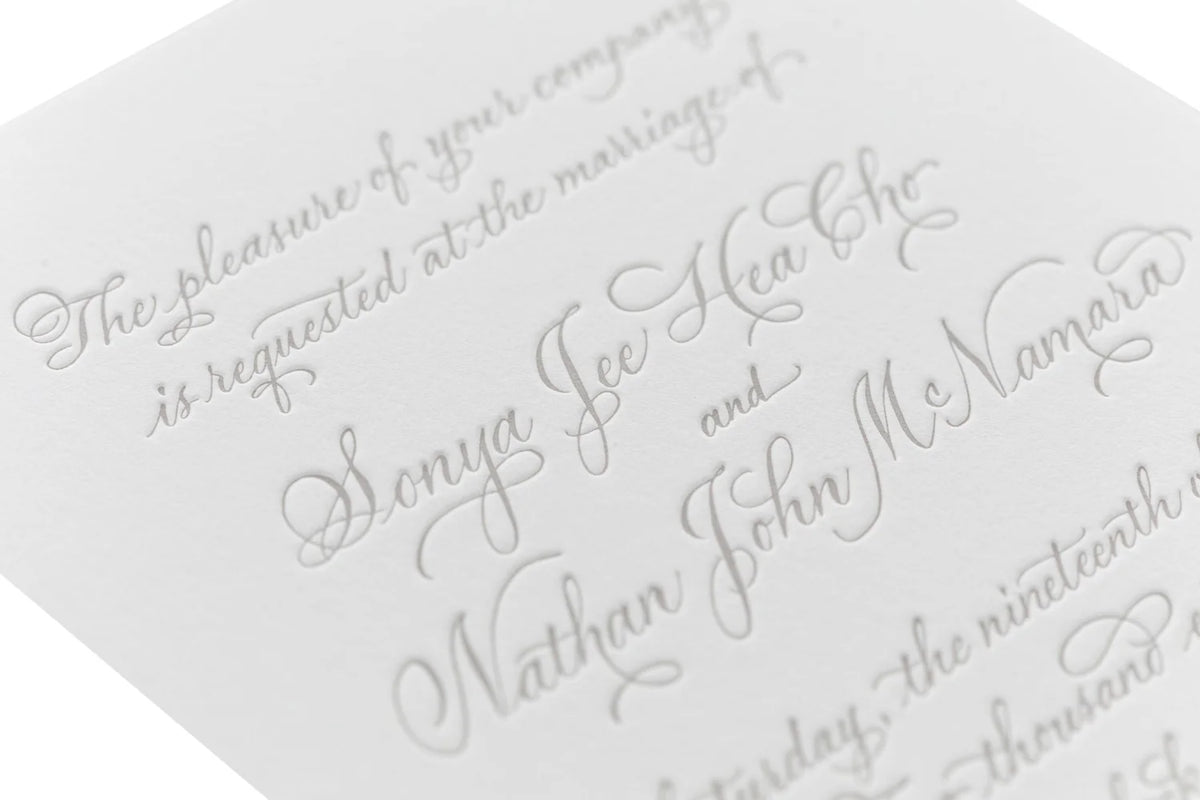 The pleasure of your company
is requested at the marriage of
Sonya Jee Hea Cho
and
Nathan John McNamara
the nineteenth
thousand